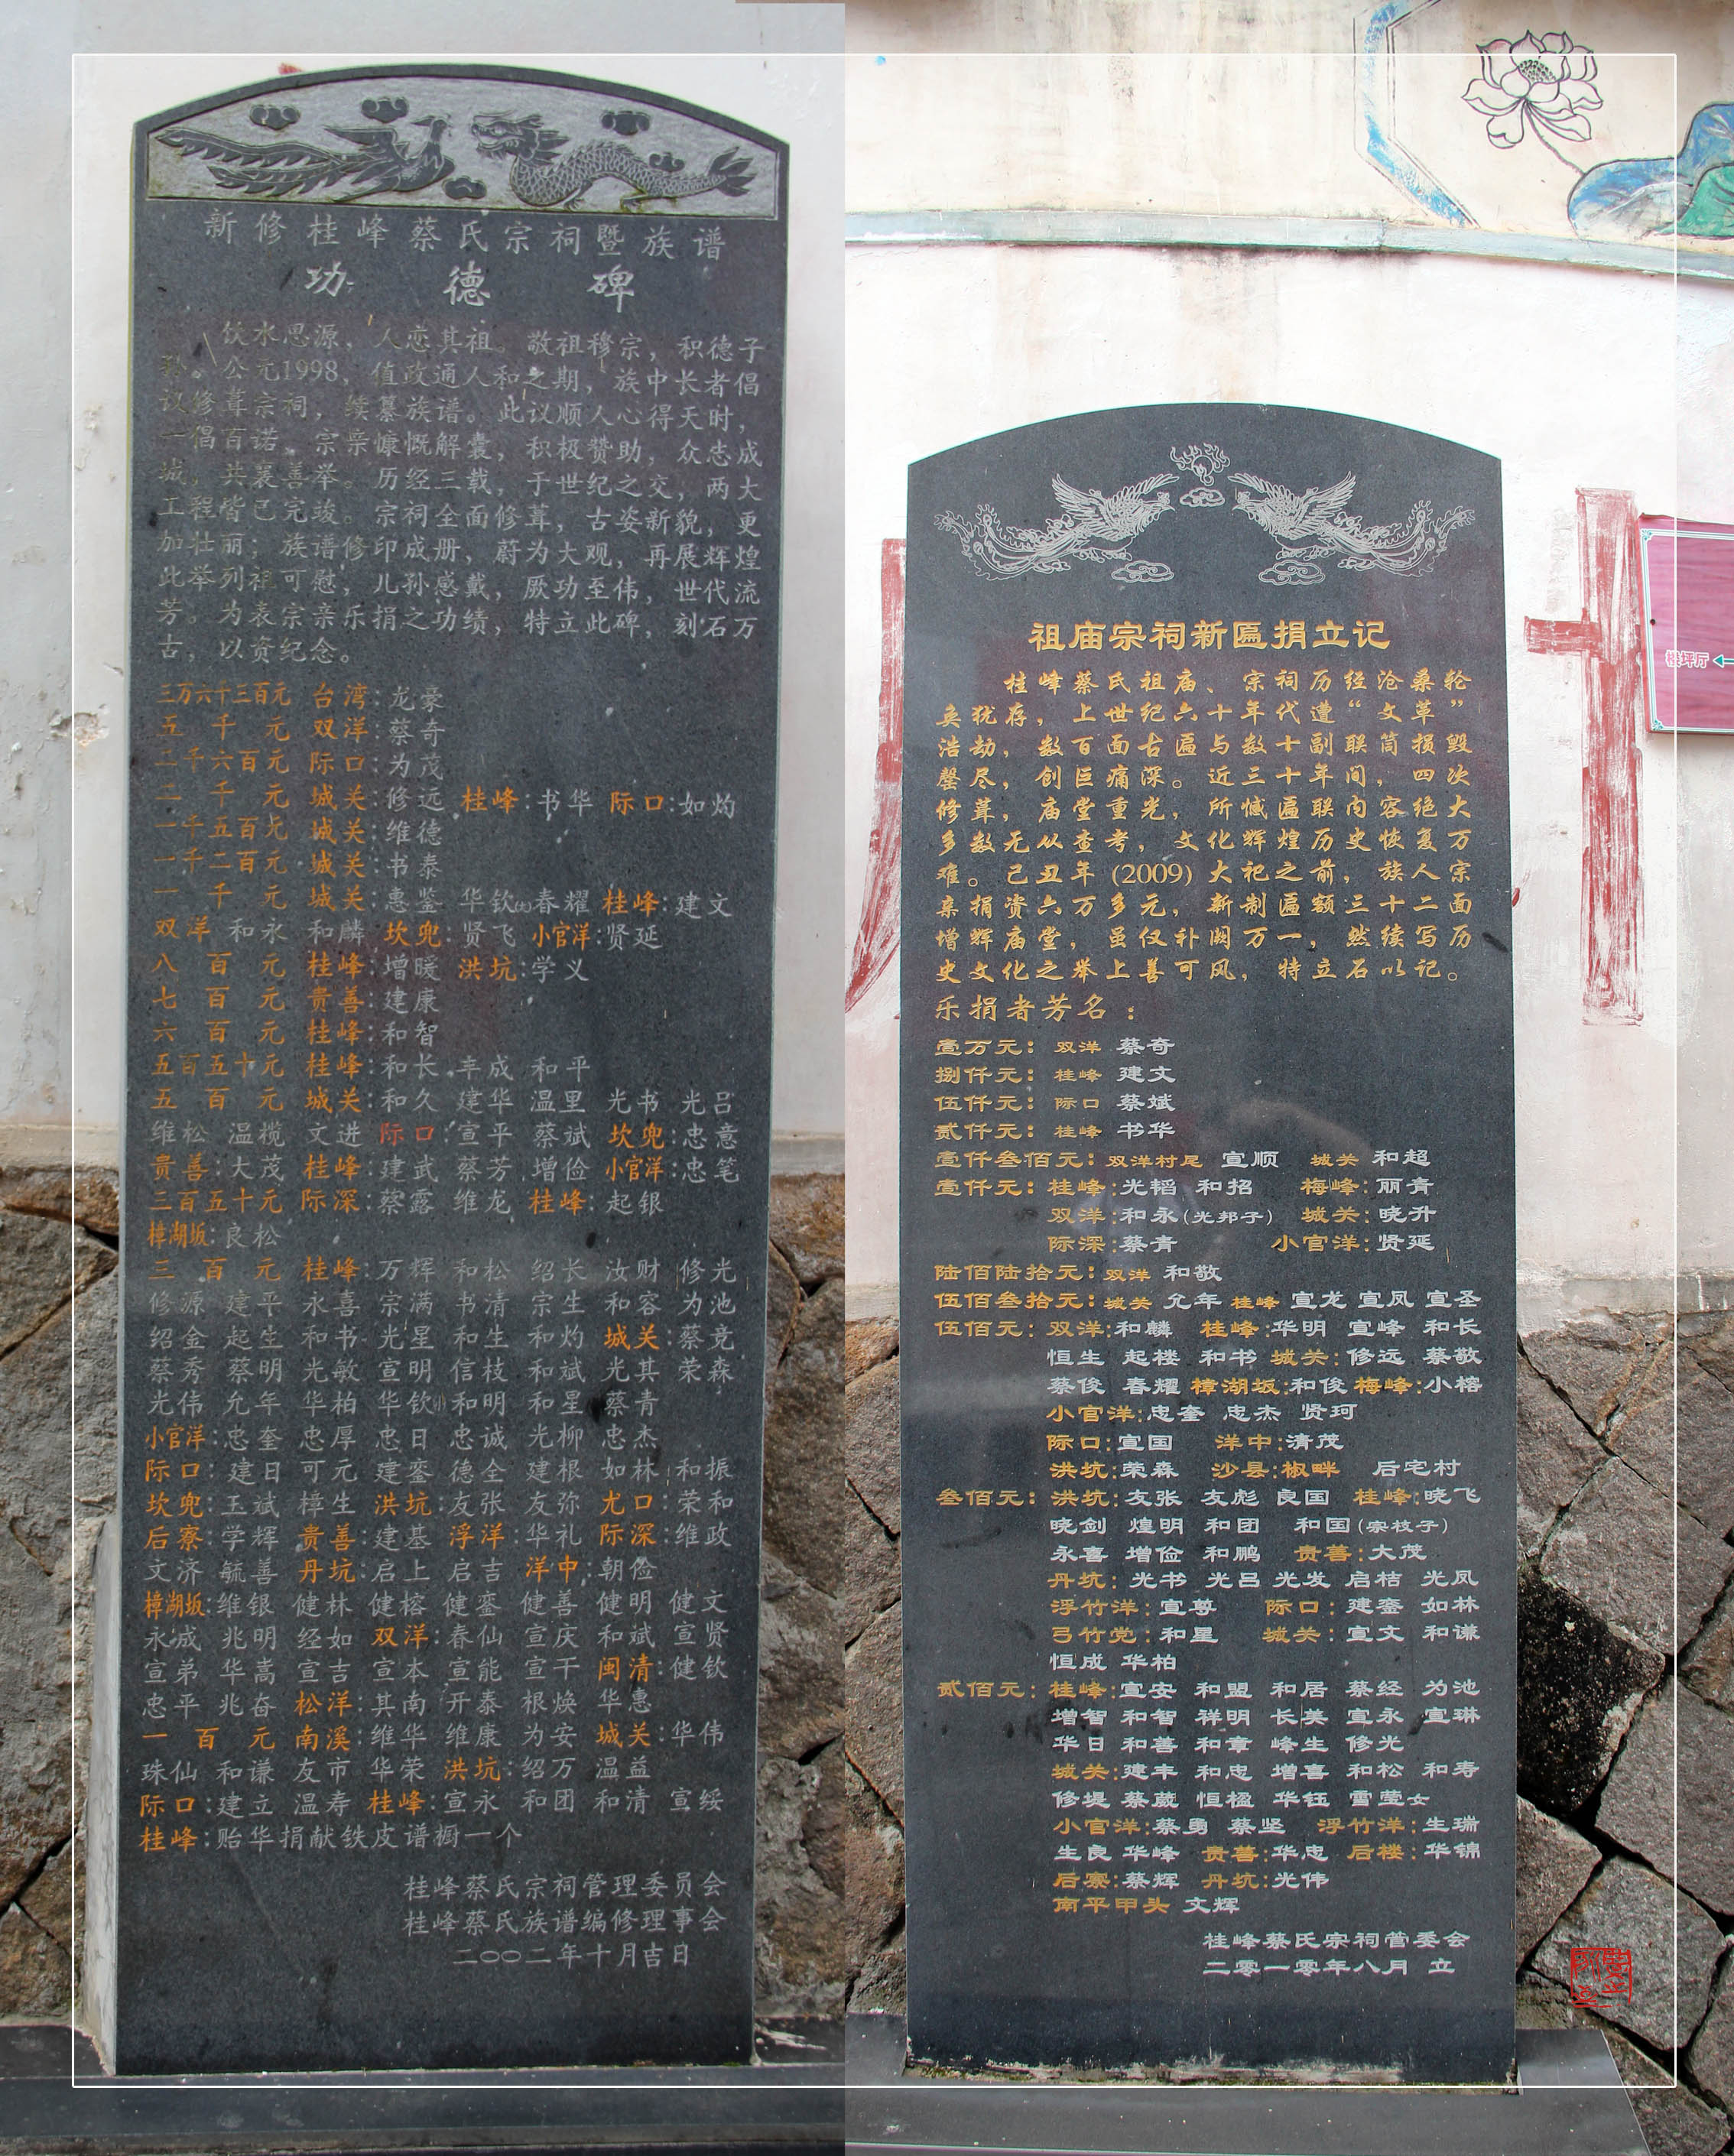 新修桂峰蔡氏宗祠暨族谱
功德碑
饮水思源，人恋其祖。敬祖穆宗，积德子
孙。公元1998，值政通人和之期，族中长者倡
议修葺宗祠，续纂族谱。此议顺人心得天时，
一倡百诺。宗亲慷慨解囊，积极赞助，众志成
城，共襄善举。历经三载，于世纪之交，两大
工程皆已完竣。宗祠全面修葺，古姿新貌，更
加壮丽；族谱修印成册，蔚为大观，再展辉煌
此举列祖可慰，儿孙感戴，厥功至伟，世代流
芳。为表宗亲乐捐之功绩，特立此碑，刻石万
古，以资纪念。
三万六千三百元 台湾：龙豪
五千元 双洋：蔡奇
二千六百元 际口：为茂
二千元 城关：修远 桂峰：书华 际口：如灼
一千五百元 城关：维德
一千二百元 城关：书泰
一千元 城关：惠鉴 华钦(大)春耀 桂峰：建文
双洋 和永 和麟 坎兜：贤飞 小官洋：贤延
八百元 桂峰：增暖 洪坑：学义
七百元 贵善：建康
六百元 桂峰：和智
五百五十元 桂峰：和长 丰成 和平
五百元 城关：和久 建华 温里 光书 光吕
维松 温榄 文进 际口：宣平 蔡斌 坎兜：忠意
贵善：大茂 桂峰：建武 蔡芳 增俭 小官洋：忠笔
二百五十元 际深：蔡露 维龙 桂峰：起银
樟湖坂：良松
三百元 桂峰：万辉 和松 绍长 汝财 修光
修源 建平 永喜 宗满 书清 宗生 和容 为池
绍金 起生 和书 光星 和生 和灼 城关：蔡竞
蔡秀 蔡明 光敏 宣明 信枝 和斌 光其 荣森
光伟 允年 华柏 华钦(小)和明 和星 蔡青
小官洋：忠奎 忠厚 忠日 忠诚 光柳 忠杰
际口：建日 可元 建銮 德全 建根 如林 和振
坎兜：玉斌 樟生 洪坑：友张 友弥 尤口：荣和
后寮：学辉 贵善：建基 浮洋：华礼 际深：维政
文济 毓善 丹坑：启上 启吉 洋中：朝俭
樟湖坂：维银 健林 健榕 健銮 健善 健明 健文
永成 兆明 经如 双洋：春仙 宣庆 和斌 宣贤
宣弟 华嵩 宣吉 宣本 宣能 宣干 闽清：健钦
忠平 兆奋 松洋：其南 开泰 根焕 华惠
一百元 南溪：维华 维康 为安 城关：华伟
珠仙 和谦 友市 华荣 洪坑：绍万 温益
际口：建立 温寿 桂峰：宣永 和团 和清 宣绥
桂峰：贻华捐献铁皮谱橱一个
桂峰蔡氏宗祠管理委员会
桂峰蔡氏族谱编修理事会
二〇〇二年十月吉日
祖庙宗祠新匾捐立记
桂峰蔡氏祖庙、宗祠历经沧桑轮
奂犹存，上世纪六十年代遭“文革”
浩劫，数百面古匾与数十副联筒损毁
罄尽，创巨痛深。近三十年间，四次
修葺，庙堂重光，所憾匾联内容绝大
多数无从查考，文化辉煌历史恢复万
难。己丑年(2009)大祀之前，族人宗
亲捐资六万多元，新制匾额三十二面
增辉庙堂，虽仅补阙万一，然续写历
史文化之举上善可风，特立石以记。
乐捐者芳名：
壹万元：双洋 蔡奇
捌仟元：桂峰 建文
伍仟元：际口 蔡斌
贰仟元：桂峰 书华
壹仟叁佰元：双洋村尾 宣顺 城关 和超
壹仟元：桂峰：光韬 和招 梅峰：丽青
双洋：和永(光邦子) 城关：晓升
际深：蔡青 小官洋：贤延
陆佰陆拾元：双洋 和敬
伍佰叁拾元：城关 允年 桂峰 宣龙 宣凤 宣圣
伍佰元：双洋：和麟 桂峰：华明 宣峰 和长
恒生 起楼 和书 城关：修远 蔡敬
蔡俊 春耀 樟湖坂：和俊 梅峰：小榕
小官洋：忠奎 忠杰 贤珂
际口：宣国 洋中：清茂
洪坑：荣森 沙县：椒畔 后宅村
叁佰元：洪坑：友张 友彪 良国 桂峰：晓飞
晓剑 煌明 和团 和国(宗枝子)
永喜 增俭 和鹏 贵善：大茂
丹坑：光书 光吕 光发 启桔 光凤
浮竹洋：宣尊 际口：建銮 如林
弓竹党：和星 城关：宣文 和谦
恒成 华柏
贰佰元：桂峰：宣安 和盟 和居 蔡经 为池
增智 和智 祥明 长美 宣永 宣琳
华日 和善 和章 峰生 修光
城关：建丰 和忠 增喜 和松 和寿
修堤 蔡葳 恒楹 华钰 雪莹女
小官洋：蔡勇 蔡坚 浮竹洋：生瑞
生良 华峰 贵善：华忠 后楼：华锦
后寮：蔡辉 丹坑：光伟
南平甲头 文辉
桂峰蔡氏宗祠管委会
二零一零年八月 立
楼坪厅